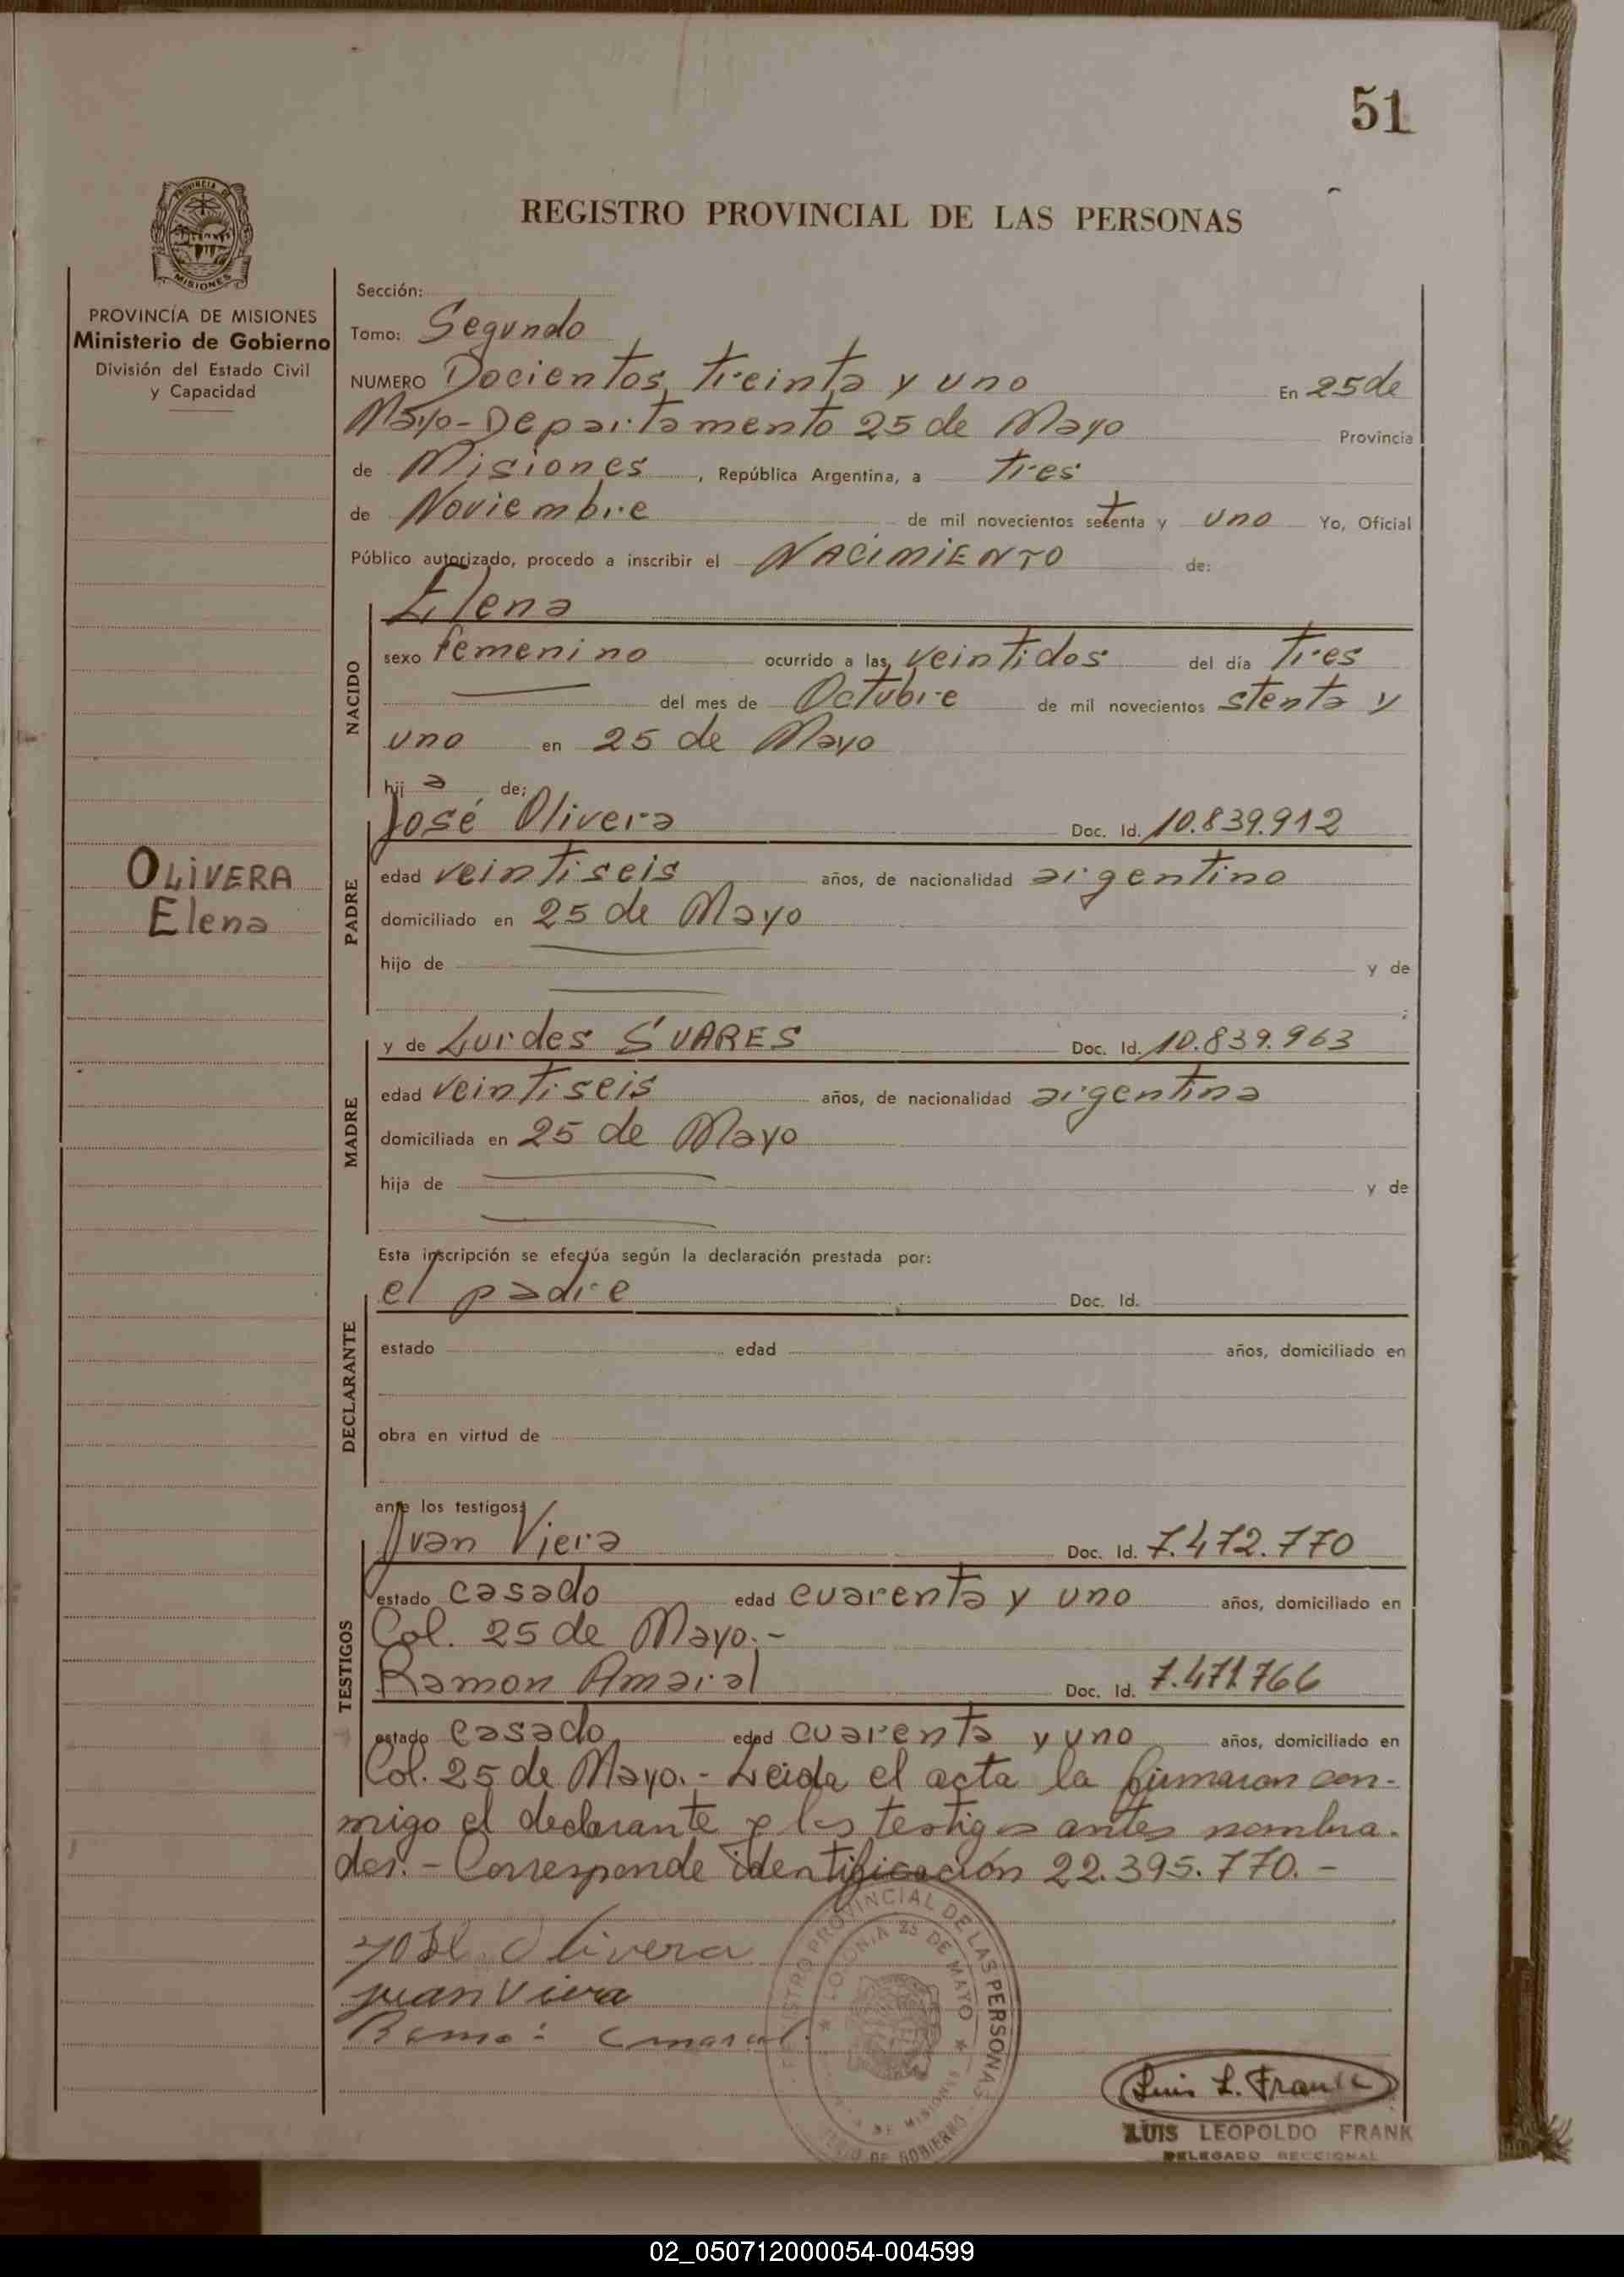 51
PROVINCIA DE
MISIONES
REGISTRO PROVINCIAL DE LAS PERSONAS
PROVINCIA DE MISIONES
Ministerio de Gobierno
División del Estado Civil
y Capacidad
OLIVERA
Elena
Sección:
Tomo: Segundo
NUMERO Docientos treinta y uno En 25 de
Mayo-Departamento 25 de Mayo Provincia
de Misiones, República Argentina, a tres
de Noviembre de mil novecientos setenta y uno Yo, Oficial
Público autorizado, procedo a inscribir el NACIMIENTO de:
Elena
NACIDO
sexo femenino ocurrido a las veintidos del día tres
del mes de Octubre de mil novecientos stenta y
uno en 25 de Mayo
hij a de:
José Olivera Doc. Id. 10.839.912
PADRE
edad veintiseis años, de nacionalidad argentino
domiciliado en 25 de Mayo
hijo de y de
;
y de Lurdes SUARES Doc. Id. 10.839.963
MADRE
edad veintiseis años, de nacionalidad argentina
domiciliada en 25 de Mayo
hija de y de
Esta inscripción se efectúa según la declaración prestada por:
el padre Doc. Id.
DECLARANTE
estado edad años, domiciliado en
obra en virtud de
ante los testigos:
Juan Viera Doc. Id. 7.472.770
TESTIGOS
estado casado edad cuarenta y uno años, domiciliado en
Col. 25 de Mayo.-
Ramon Amaral Doc. Id. 7.471.766
estado casado edad cuarenta y uno años, domiciliado en
Col. 25 de Mayo.- Leida el acta la firmaron con-
migo el declarante y los testigos antes nombra-
dos.- Corresponde identificación 22.395.770.-
José Olivera
juan Viera
Amaral
PROVINCIAL DE LAS PERSONAS
COLONIA 25 DE MAYO
DE MISIONES
DE GOBIERNO
Luis L. Frank
LUIS LEOPOLDO FRANK
DELEGADO SECCIONAL
02_050712000054-004599